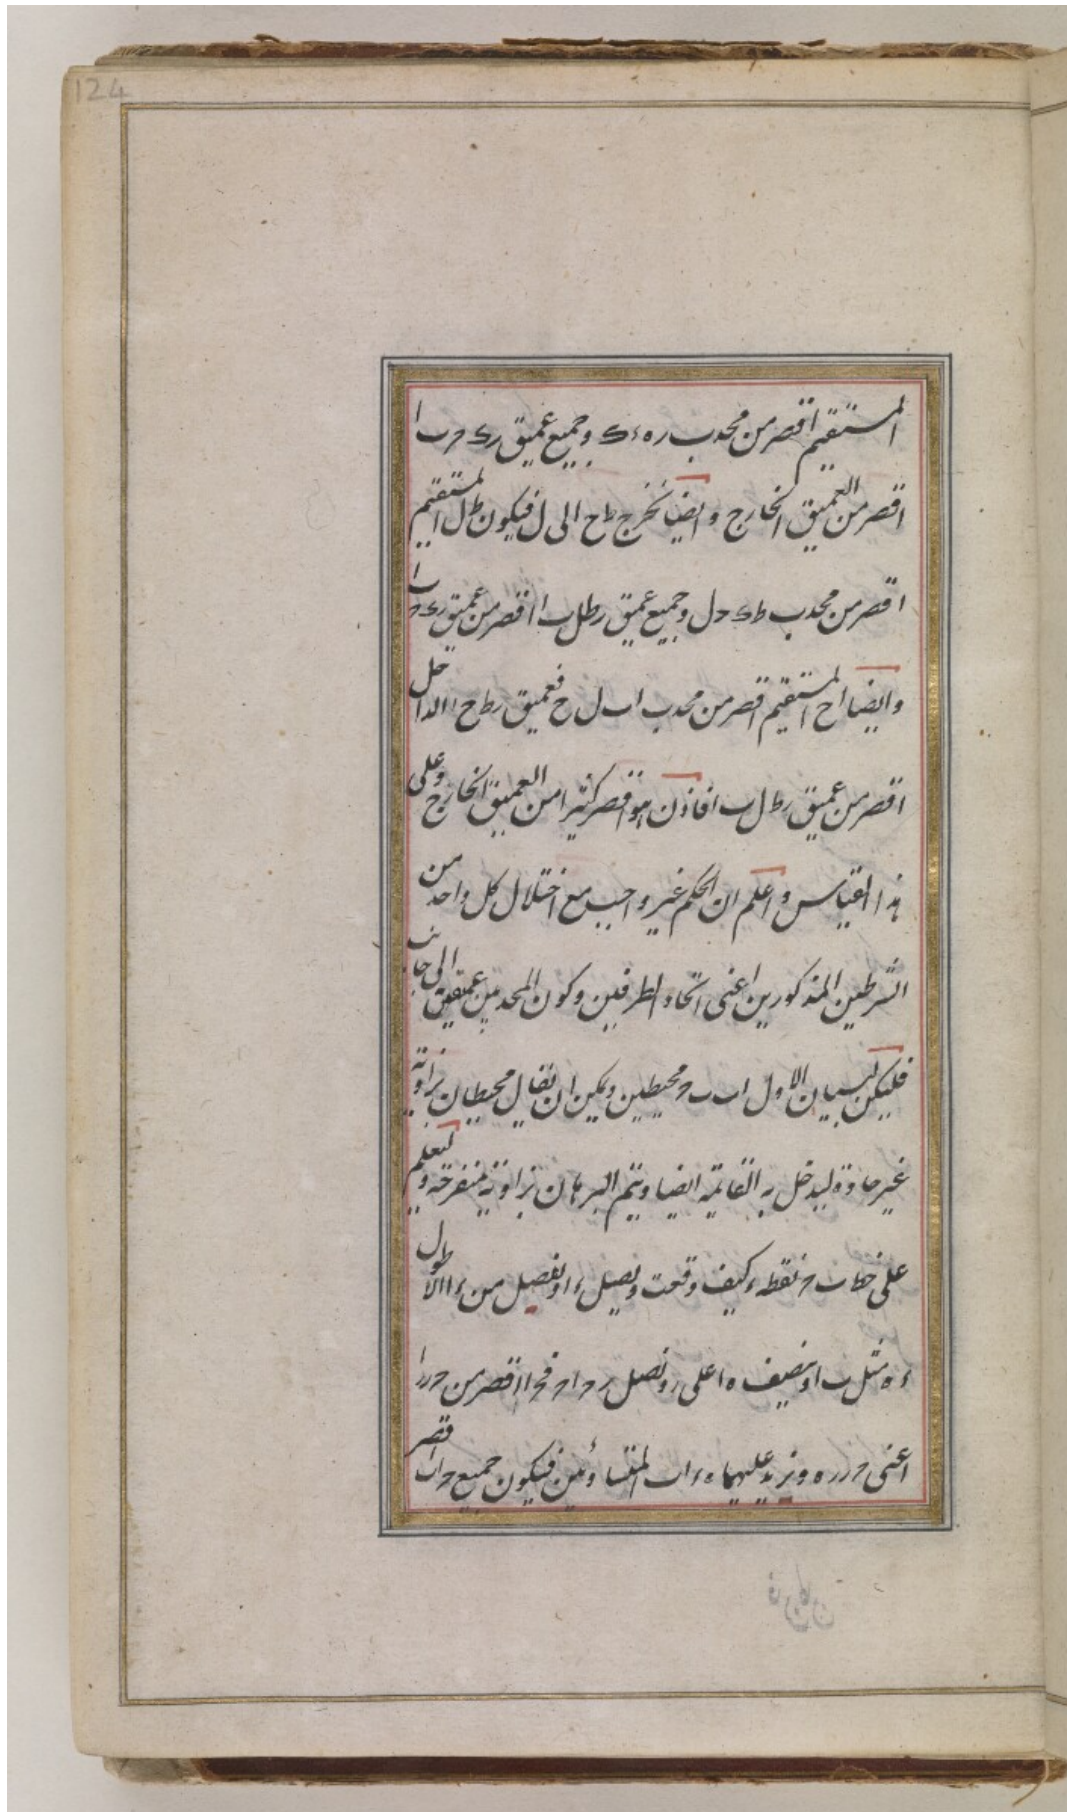 124
المستقيم اقصر من محدب ره ءک وجميع عميق رک حب ا
اقصر من العميق الخارج وايضا نخرج طح الى ل فيكون طل المستقيم
اقصر من محدب طک حل وجميع عميق رطل ب ا اقصر من عميق رک ح ب ا
وايضا اح المستقيم اقصر من محدب اب ل ح فعميق رطح ا الداخل
اقصر من عميق رطل ب ا فاذن هو اقصر كثيرا من العميق الخارج وعلى
هذا القياس واعلم ان الحكم غير واجب مع اختلال كل واحد من
الشرطين المذكورين اعنى اتحاد الطرفين وكون المحدبين عميقين الى جانب
فليكن لبيان الاول اب ب ح محيطين ويمكن ان يقال محيطان بزاوية
غير حادة ليدخل به القائمة ايضا ويتم البرهان بزاوية منفرجة وليعلم
على خط ب ح نقطة ء كيف وقعت ونصل ء ا ونفصل من ء ا الاطول
ء ه مثل ب ا وننصف ه ا على ر ونصل ر ح ا ح فح ا اقصر من ح ر ر ا
اعنى ح ر ر ه ونزيد عليهما ه ء اب المتساويين فيكون جميع ح ا ب اقصر